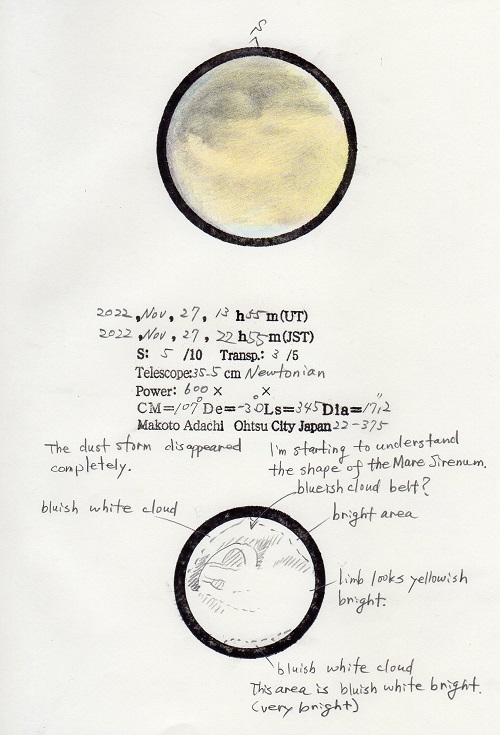 S
2022, Nov, 27, 13 h 55 m (UT)
2022, Nov, 27, 22 h 55 m (JST)
S: 5 /10 Transp.: 3 /5
Telescope: 35.5 cm Newtonian
Power: 600 × ×
CM=107° De=-3.0 Ls=345° Dia=17".2
Makoto Adachi Ohtsu City Japan 22-375
The dust storm disappeared
completely.
I'm starting to understand
the shape of the Mare Sirenum.
blueish cloud belt?
bluish white cloud
bright area
limb looks yellowish
bright.
bluish white cloud
This area is bluish white bright.
(very bright)